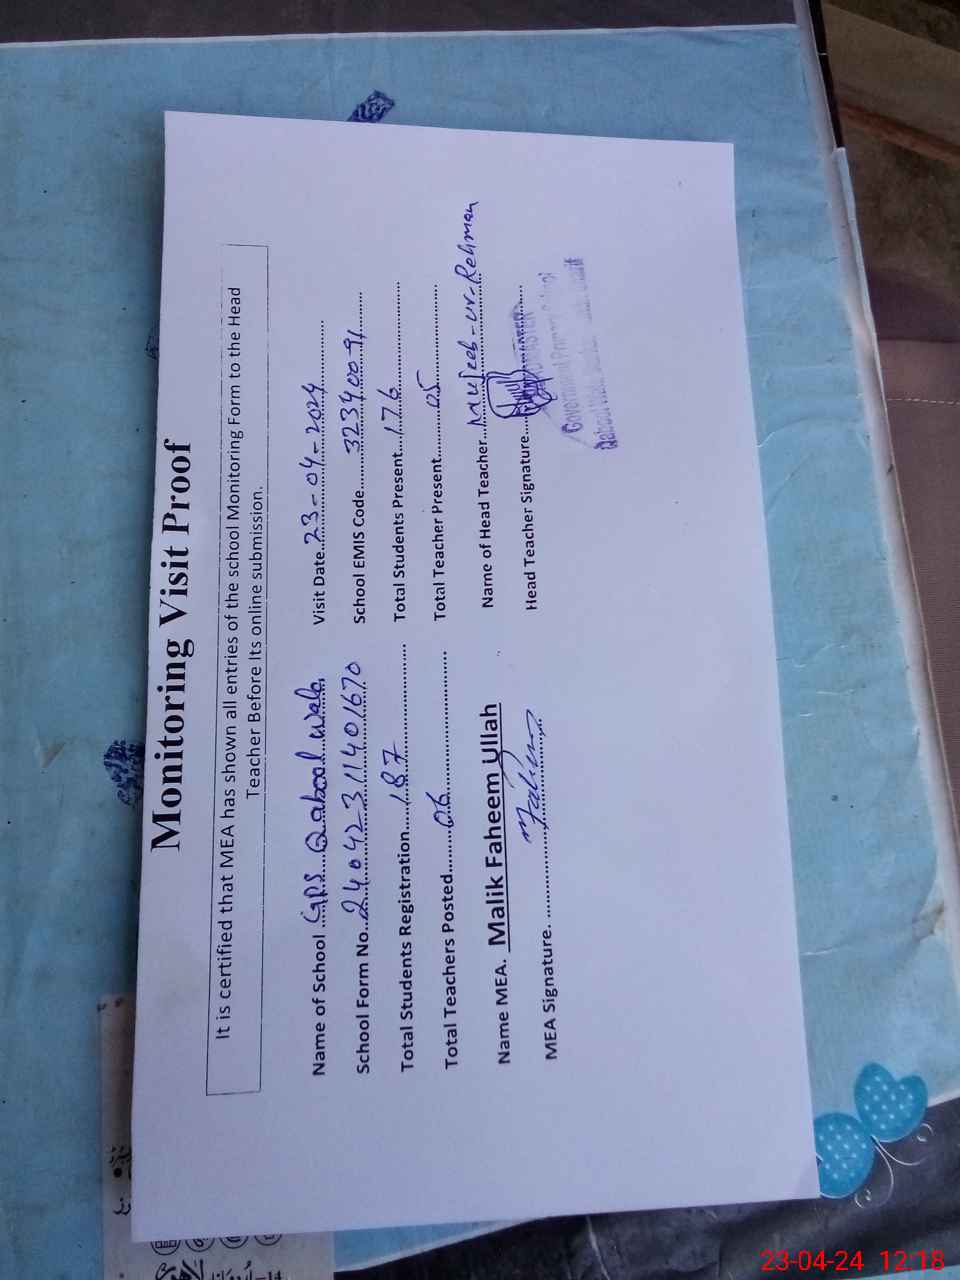 Monitoring Visit Proof
It is certified that MEA has shown all entries of the school Monitoring Form to the Head
Teacher Before Its online submission.
Name of School GPS Qabool Wala Visit Date 23-04-2024
School Form No. 240423111401670 School EMIS Code 32340091
Total Students Registration 187 Total Students Present 176
Total Teachers Posted 06 Total Teacher Present 05
Name MEA. Malik Faheem Ullah Name of Head Teacher Mujeeb-ur-Rehman
MEA Signature. Faheem Head Teacher Signature
Government Primary School
Qabool Wala
23-04-24 12:18